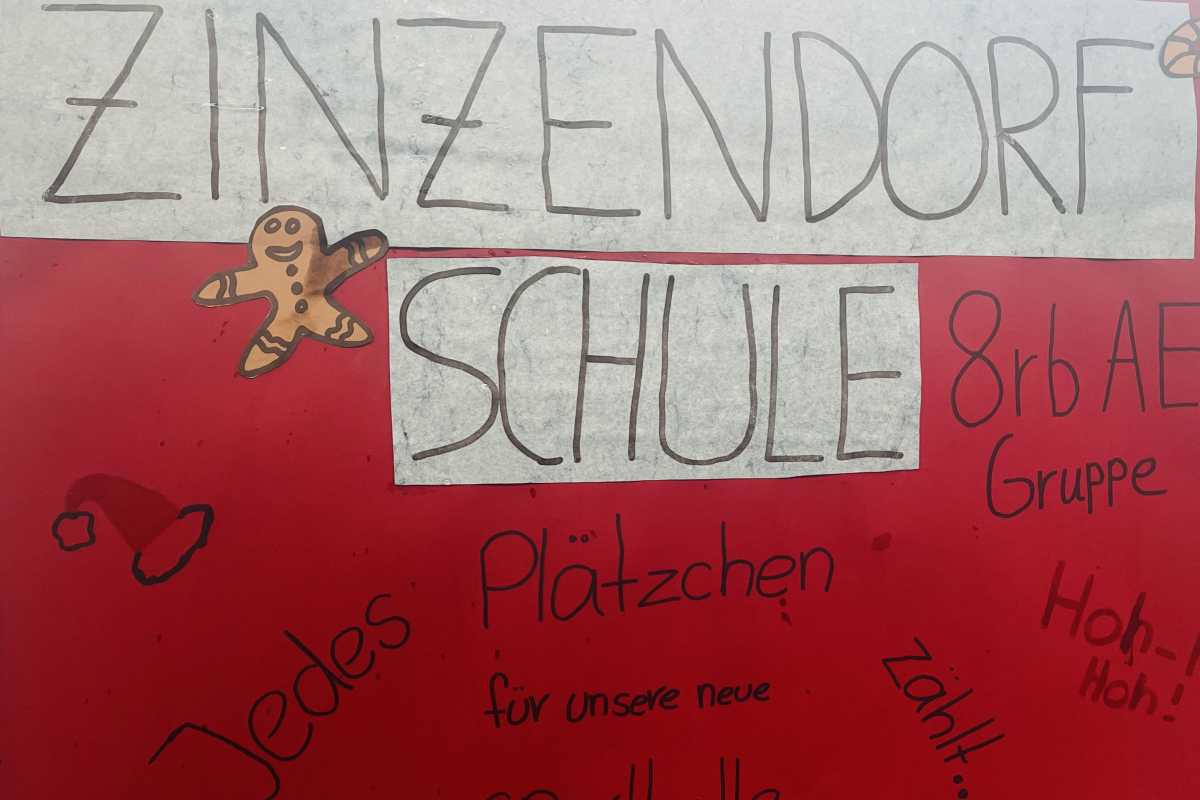 ZINZENDORF
SCHULE
8rb AE
Gruppe
Jedes
Plätzchen
zählt..
für unsere neue
Hoh-
Hoh!